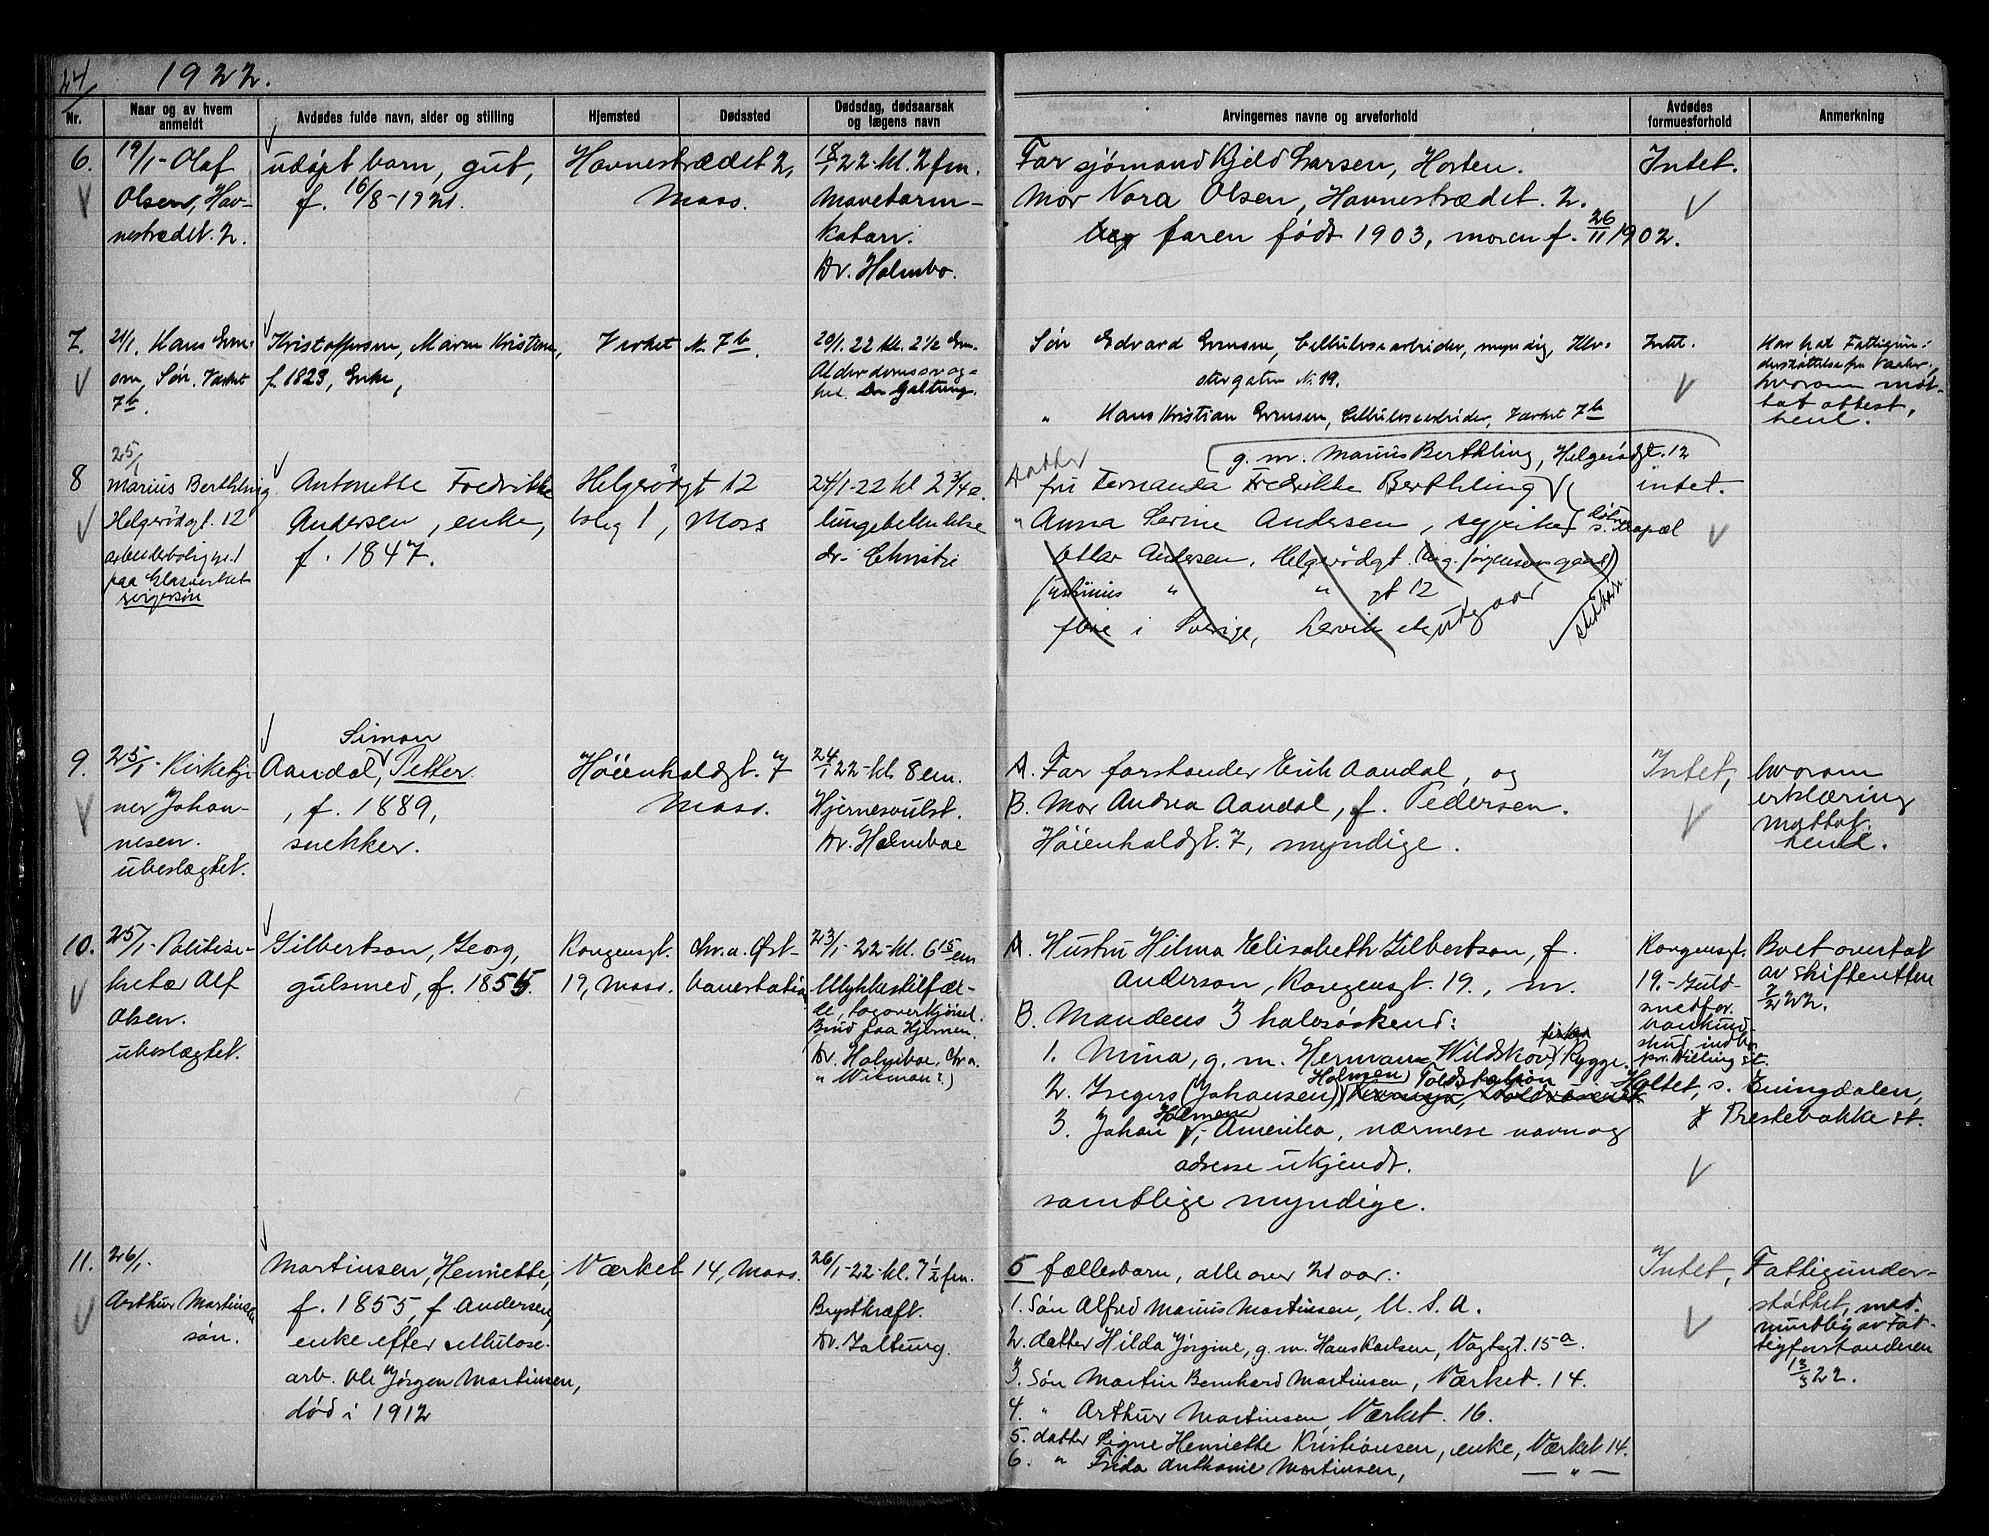 24
1922.
Nr.
Naar og av hvem anmeldt
Avdødes fulde navn, alder og stilling
Hjemsted
Dødssted
Dødsdag, dødsaarsak og lægens navn
Arvingernes navne og arveforhold
Avdødes formuesforhold
Anmerkning
6.
19/1 - Olaf
Olsen, Hav-
nestrædet. 2.
udøpt barn, gut,
f. 16/8-1921.
Havnestrædet 2,
Moss.
18/1 22-kl. 2 fm.
Mavetarm-
katarr.
Dr. Holmbo.
Far sjømand Kjeld Larsen, Horten.
Mor Nora Olsen, Havnestrædet. 2.
faren født 1903, moren f. 26/11 1902.
Intet.
7.
21/1. Hans
Søn. Værket
7b.
Kristoffersen, Maren
f. 1823, Enke,
Værket N. 7b.
20/1. 22 kl. 2 1/2
Dr Galtung.
Søn Edvard Evensen, Cellulosearbeider, myndig,
gaten N. 19.
" Hans Kristian Evensen, Cellulosearbeider, Værket 7b
Intet.
Har hat Fattigun-
derstøttelse fra Vaaler,
hvorom mot-
tat attest,
henl.
8
25/1
Marius Berthling
Helgerødgt. 12
arbeiderbolig nr. 1
paa Glasverket
svigersøn
Antonette Fredrikke
Andersen, enke,
f. 1847.
Helgerødgt 12
bolig 1, Moss
24/1-22 kl 2 3/4 e.
lungebetendelse
dr. Christie
g. m. Marius Berthling, Helgerødgt. 12
Datter
fru Fernanda Fredrikke Berthling
" Anna Serine Andersen, sypike
Andersen, Helgerødgt. Jørgensens gaard)
" " gt 12
flere i Sverige, Larvik etc utgaar
intet.
9.
25/1 - Kirketje-
ner Johan-
nesen.
ubeslægtet.
Simon
Aandal, Petter
, f. 1889,
snekker.
Høienhaldgt. 7
Moss.
24/1 22-kl. 8 em.
Hjernesvulst.
Dr. Holmboe
A. Far forstander Erik Aandal, og
B. Mor Andrea Aandal, f. Pedersen.
Høienhaldgt. 7, myndige.
Intet,
hvorom
erklæring
mottat.
henl.
10.
25/1 - Politise-
kretær Alf
Olsen.
ubeslægtet.
Gilbertson, Georg,
gulsmed, f. 1855.
Kongensgt.
19, Moss.
Chr.a. Øst-
banestation
23/1-22-kl. 6 15 em
Ulykkestilfæl-
de, togoverkjørsel.
Brud paa Hjernen.
Dr. Holmboe, Chr.a.
" Wikman?)
A. Hustru Hilma Elisabeth Gilbertson, f.
Anderson, Kongensgt. 19., m.
B. Mandens 3 halvsøskend:
1. Mina, g. m. Herman Wildskov, Rygge.
Holmsen Toldstation
2. Gregers (Johansen) Holtet, s. Enningdalen,
Prestebakke st.
Holmsen
3. Johan , Amerika, nærmere navn og
adresse ukjendt.
samtlige myndige.
Kongensgt.
19.-Guld-
smedfor.
Boet overtat
av skifteretten
7/2 22.
11.
26/1.
Arthur Martinsen
søn.
Martinsen, Henriette,
f. 1855, f Andersen,
enke efter cellulose-
arb. Ole Jørgen Martinsen,
død i 1912
Værket 14, Moss.
26/1-22-kl. 7 1/2 fm.
Brystkræft.
Dr. Galtung.
5 fællesbarn, alle over 21 aar.:
1. Søn Alfred Marius Martinsen, U. S. A.
2. datter Hilda Jørgine, g. m. Hans Karlsen, Vogtsgt. 15a.
3. Søn Martin Bernhard Martinsen, Værket. 14.
4. " Arthur Martinsen Værket. 16.
5. datter Signe Henriette Kristiansen, enke, Værket 14.
6. " Frida Anthonie Martinsen, — " —
Intet,
Fattigunder-
støttet, med.
mundtlig av Fat-
tigforstanderen
13/3 22.